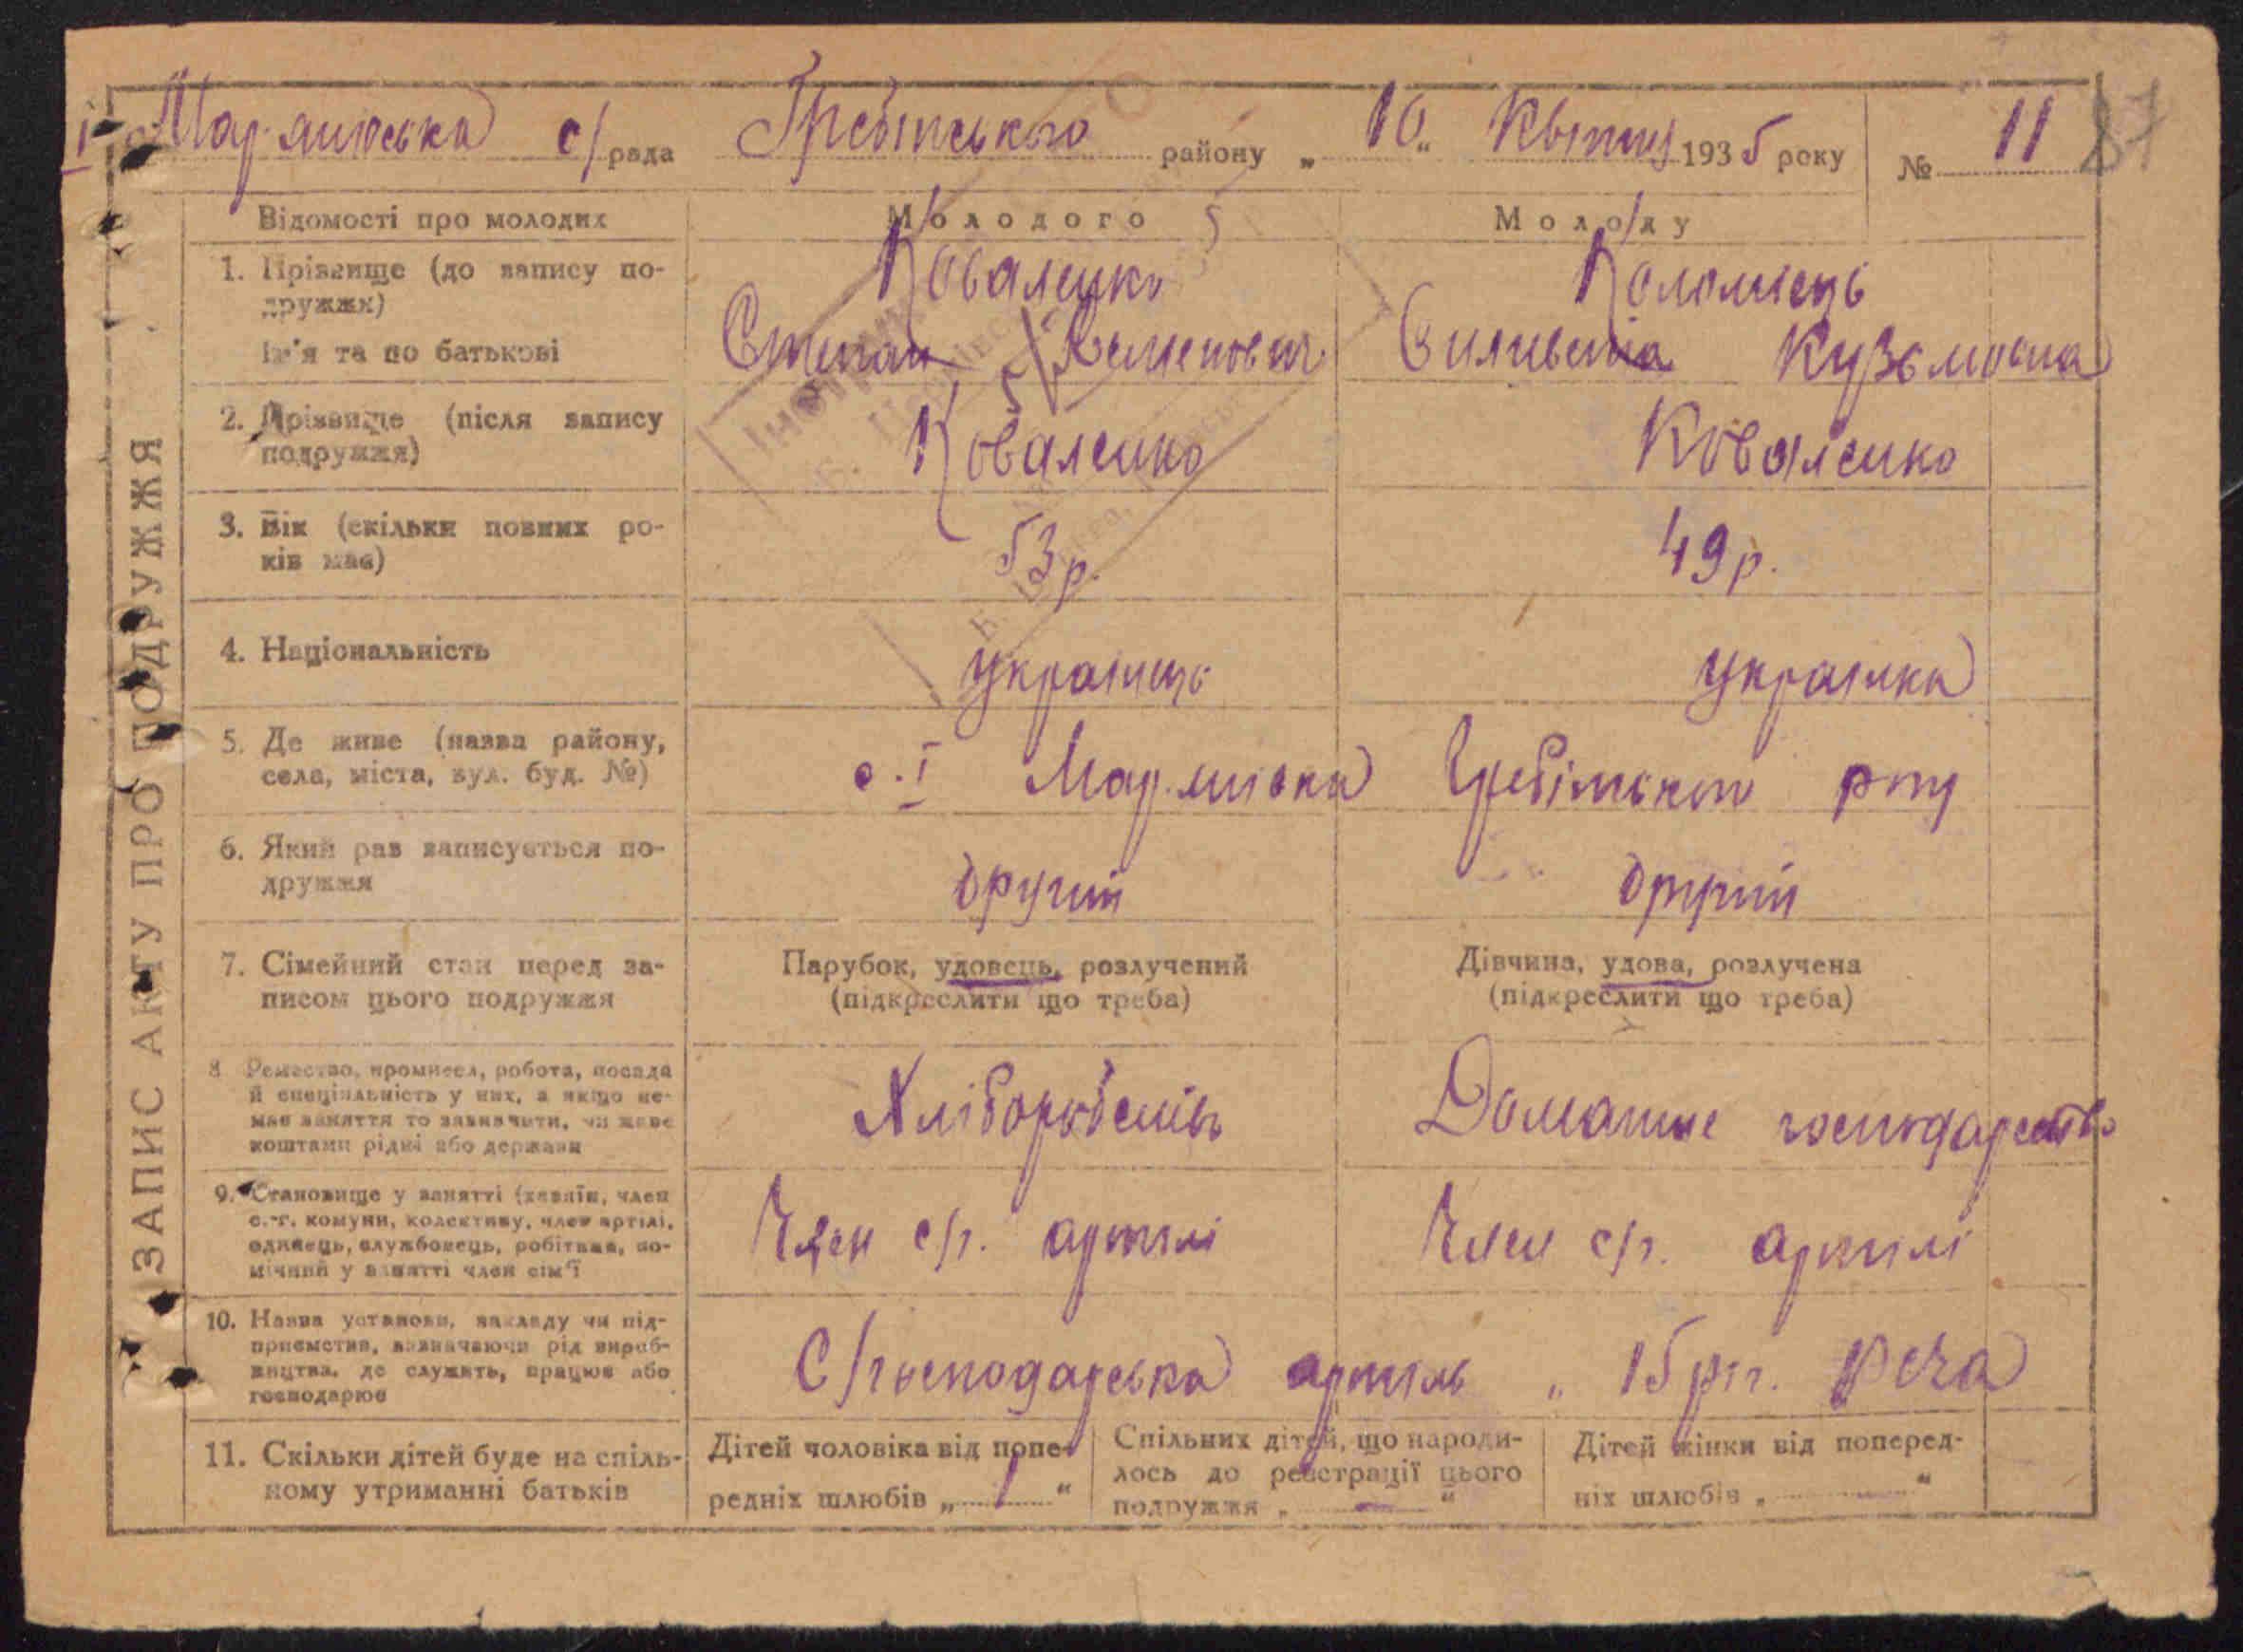 І Мар'янівська с/рада Гребінського району „10“ Квітня 1935 року № 11 87
ЗАПИС АКТУ ПРО ПОДРУЖЖЯ
Відомості про молодих Молодого Молоду
1. Прізвище (до запису по-
дружжя) Коваленко Коломієць
Ім'я та по батькові Степан Семенович Кузьмовна
2. Прізвище (після запису
подружжя) Коваленко Коваленко
3. Вік (скільки повних ро-
ків має) 53 р. 49 р.
4. Національність українець українка
5. Де живе (назва району,
села, міста, вул. буд. №) с. І Мар'янівка Гребінського р-ну
6. Який раз записується по-
дружжя другий другий
7. Сімейний стан перед за-
писом цього подружжя
Парубок, удовець, розлучений
(підкреслити що треба)
Дівчина, удова, розлучена
(підкреслити що треба)
8. Ремество, промисел, робота, посада
й спеціальність у них, а якщо не-
має заняття то зазначити, чи живе
коштами рідні або держави
Хлібороб
Домашнє господарство
9. Становище у занятті (хазяїн, член
с.-г. комуни, колективу, член артілі,
одинець, службовець, робітник, по-
мічний у занятті член сім'ї
Член с/г. артілі
Член с/г. артілі
10. Назва установи, закладу чи під-
приємства, зазначаючи рід вироб-
ництва, де служить, працює або
господарює
С/господарська артіль „15 річ.
11. Скільки дітей буде на спіль-
ному утриманні батьків
Дітей чоловіка від попе-
редніх шлюбів „1“
Спільних дітей, що народи-
лось до реєстрації цього
подружжя „—“
Дітей жінки від поперед-
ніх шлюбів „—“